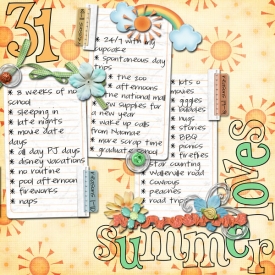 31
* 8 weeks of no
school
* sleeping in
* late nights
* movie date
days
* all day PJ days
* disney vacations
* no routine
* pool afternoon
* fireworks
* naps
* 24/7 with my
cupcake
* spontaneous day
trips
* the zoo
* afternoons
* the national mall
* new supplies for
a new year
* wake up calls
from
* more scrap time
* graduate school
* lots o
movies
* giggles
* bubbles
* hugs
* stories
* BBQ
* picnics
* fireflies
* star counting
* waterville road
* cowboys
* peaches
* road trip
summer
loves